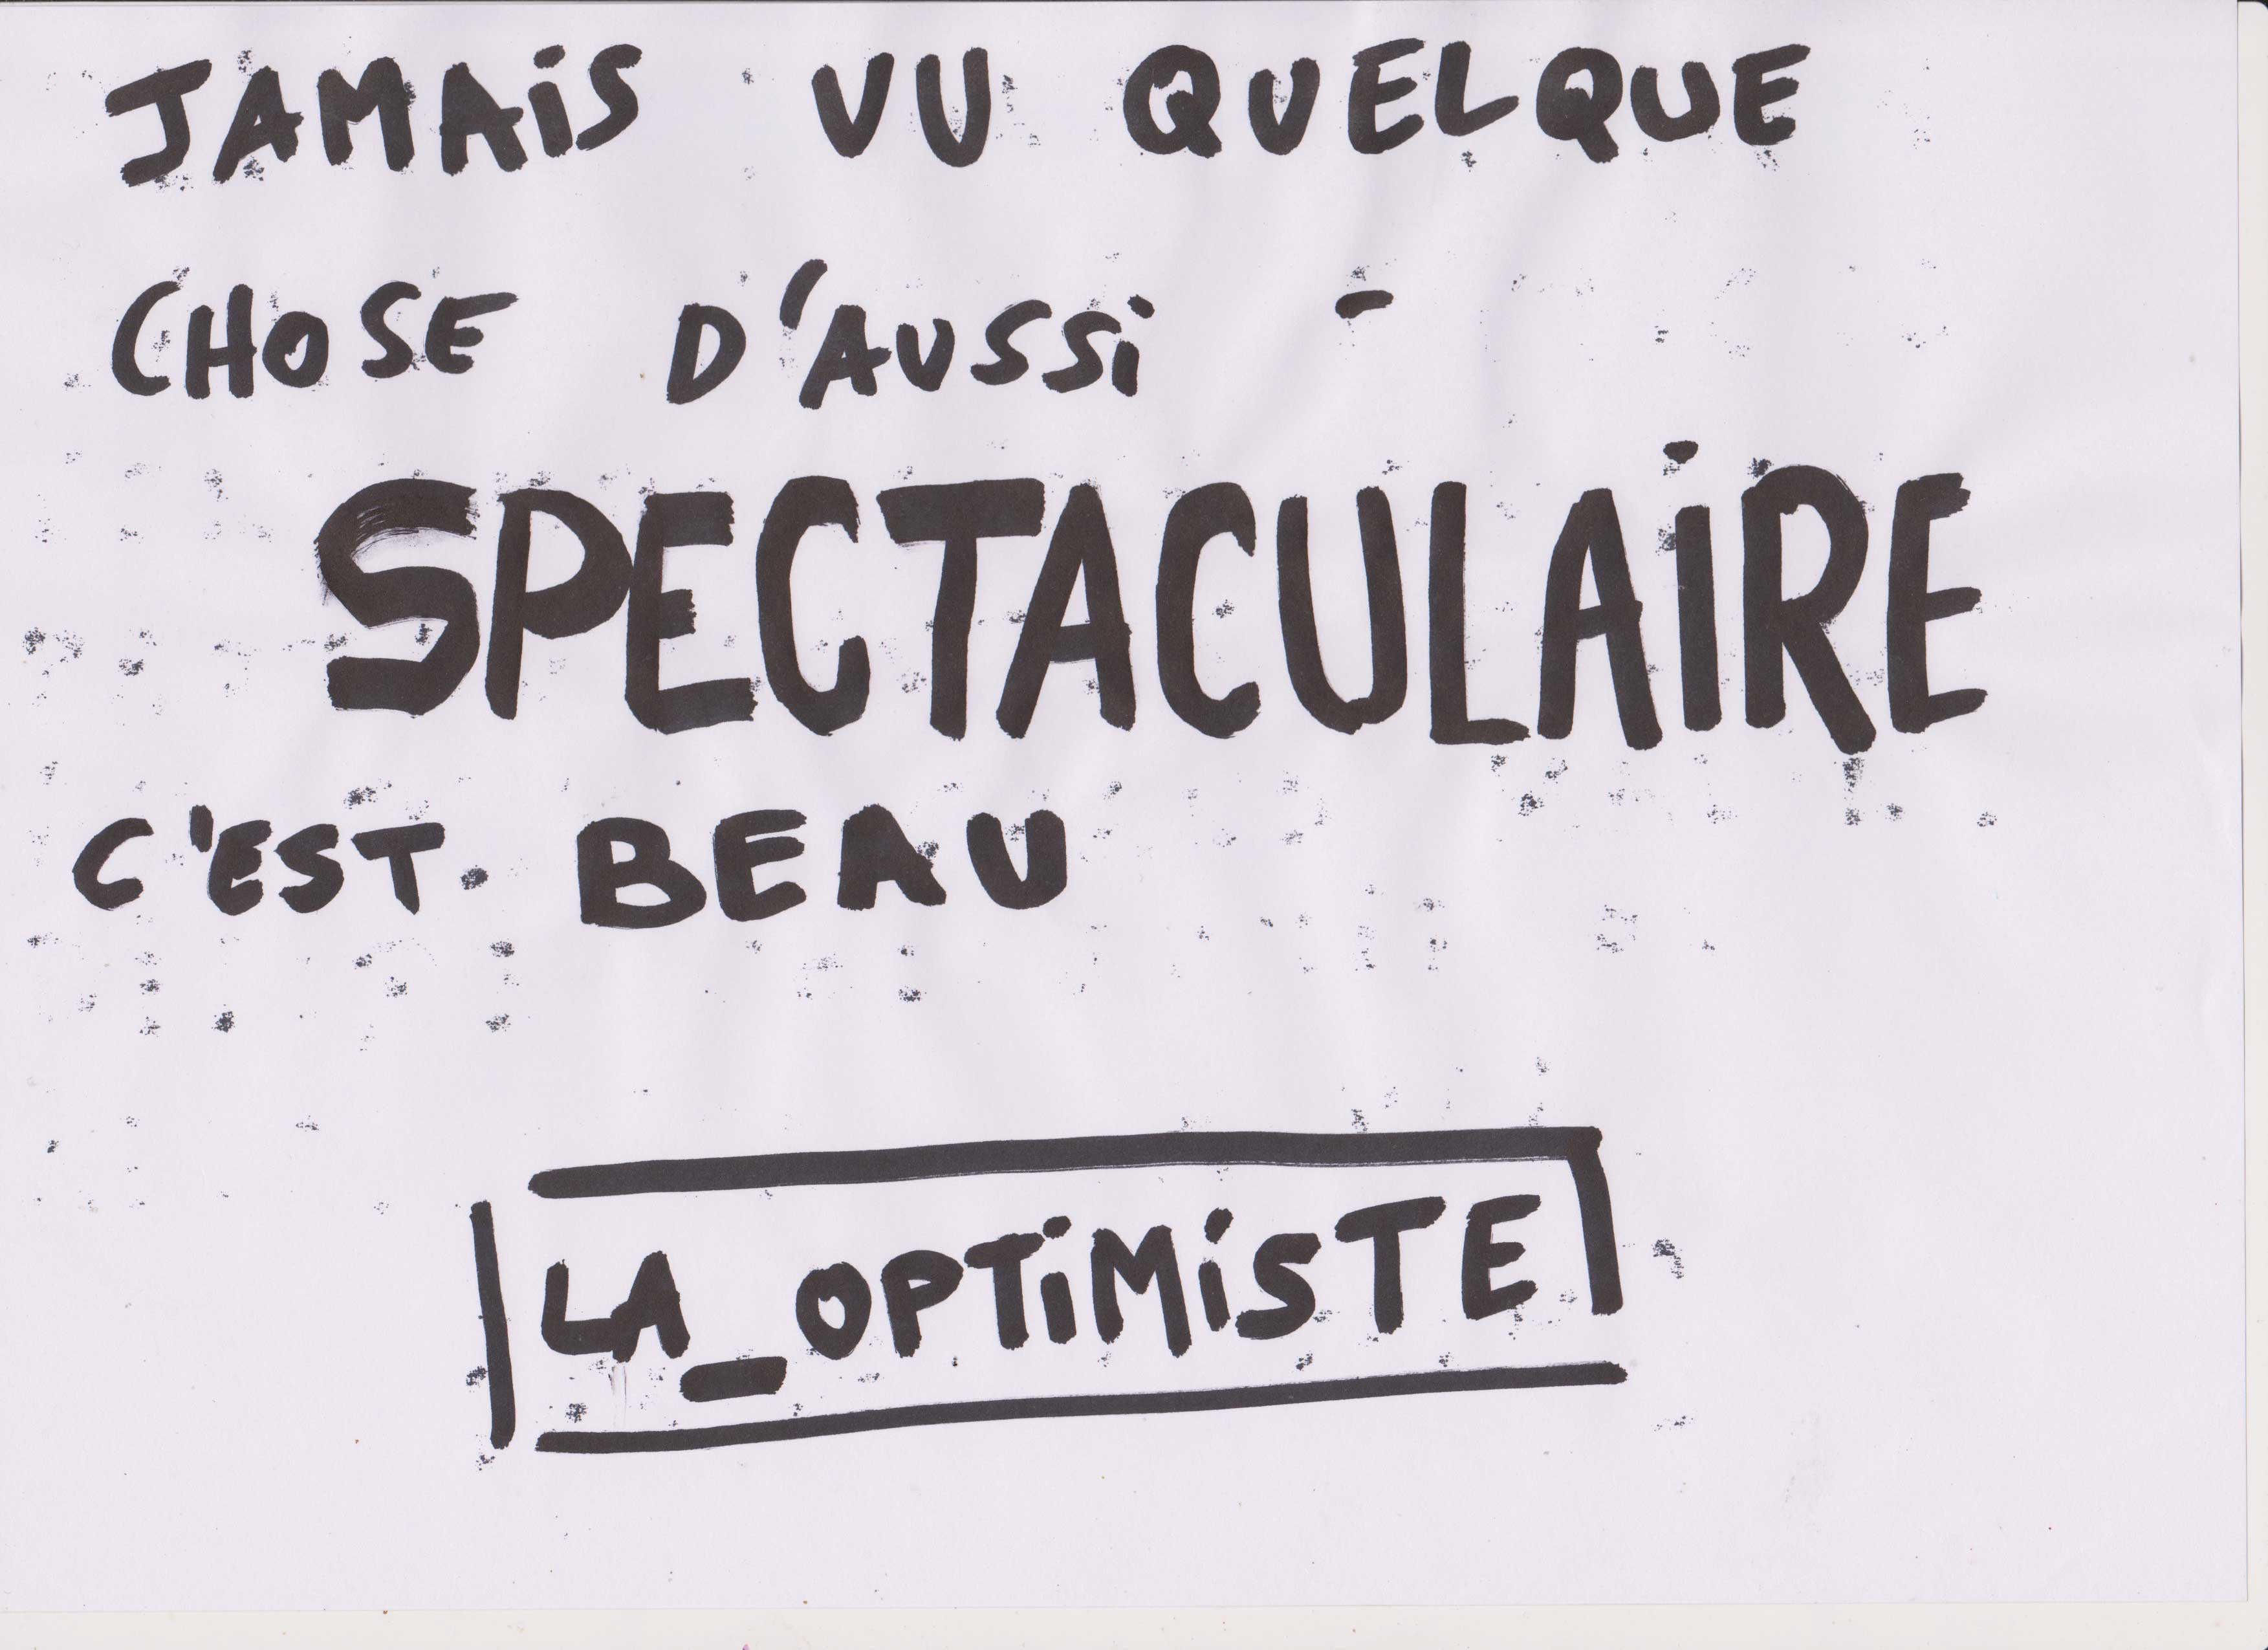 JAMAiS VU QUELQUE
CHOSE D'AUSSi -
SPECTACULAiRE
C'EST. BEAU
LA_OPTiMiSTE